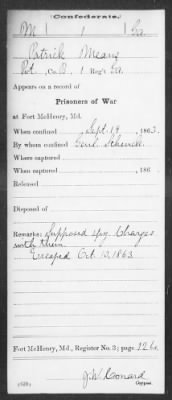 Confederate.
M 1 Ga
Patrick Means
Pvt., Co. B, 1 Reg't Ga.
Appears on a record of
Prisoners of War
at Fort McHenry, Md.
When confined Sept. 19, 1863.
By whom confined Genl. Schenck
Where captured
When captured , 186 .
Released
Disposed of
Remarks: Supposed spy Charges
with them
Escaped Oct. 10, 1863
Fort McHenry, Md., Register No. 3; page 126
J. W. Conard
Copyist.